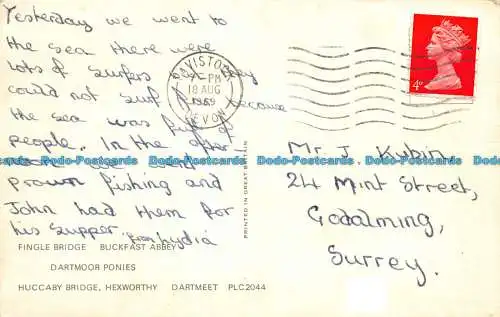 Yesterday we went to
the sea there were
lots of surfers but they
could not surf because
the sea was full of
people. In the after
noon we went
prawn fishing and
John had them for
his supper. from Lydia
TAVISTOCK
PM
18 AUG
1969
DEVON
4D
Mr. J. Kubin,
24 Mint Street,
Godalming,
Surrey.
PRINTED IN GREAT BRITAIN
FINGLE BRIDGE BUCKFAST ABBEY
DARTMOOR PONIES
HUCCABY BRIDGE, HEXWORTHY DARTMEET PLC2044
Dodo-Postcards Dodo-Postcards Dodo-Postcards Dodo-Postcards Dodo-Postcards Dodo-Postcards